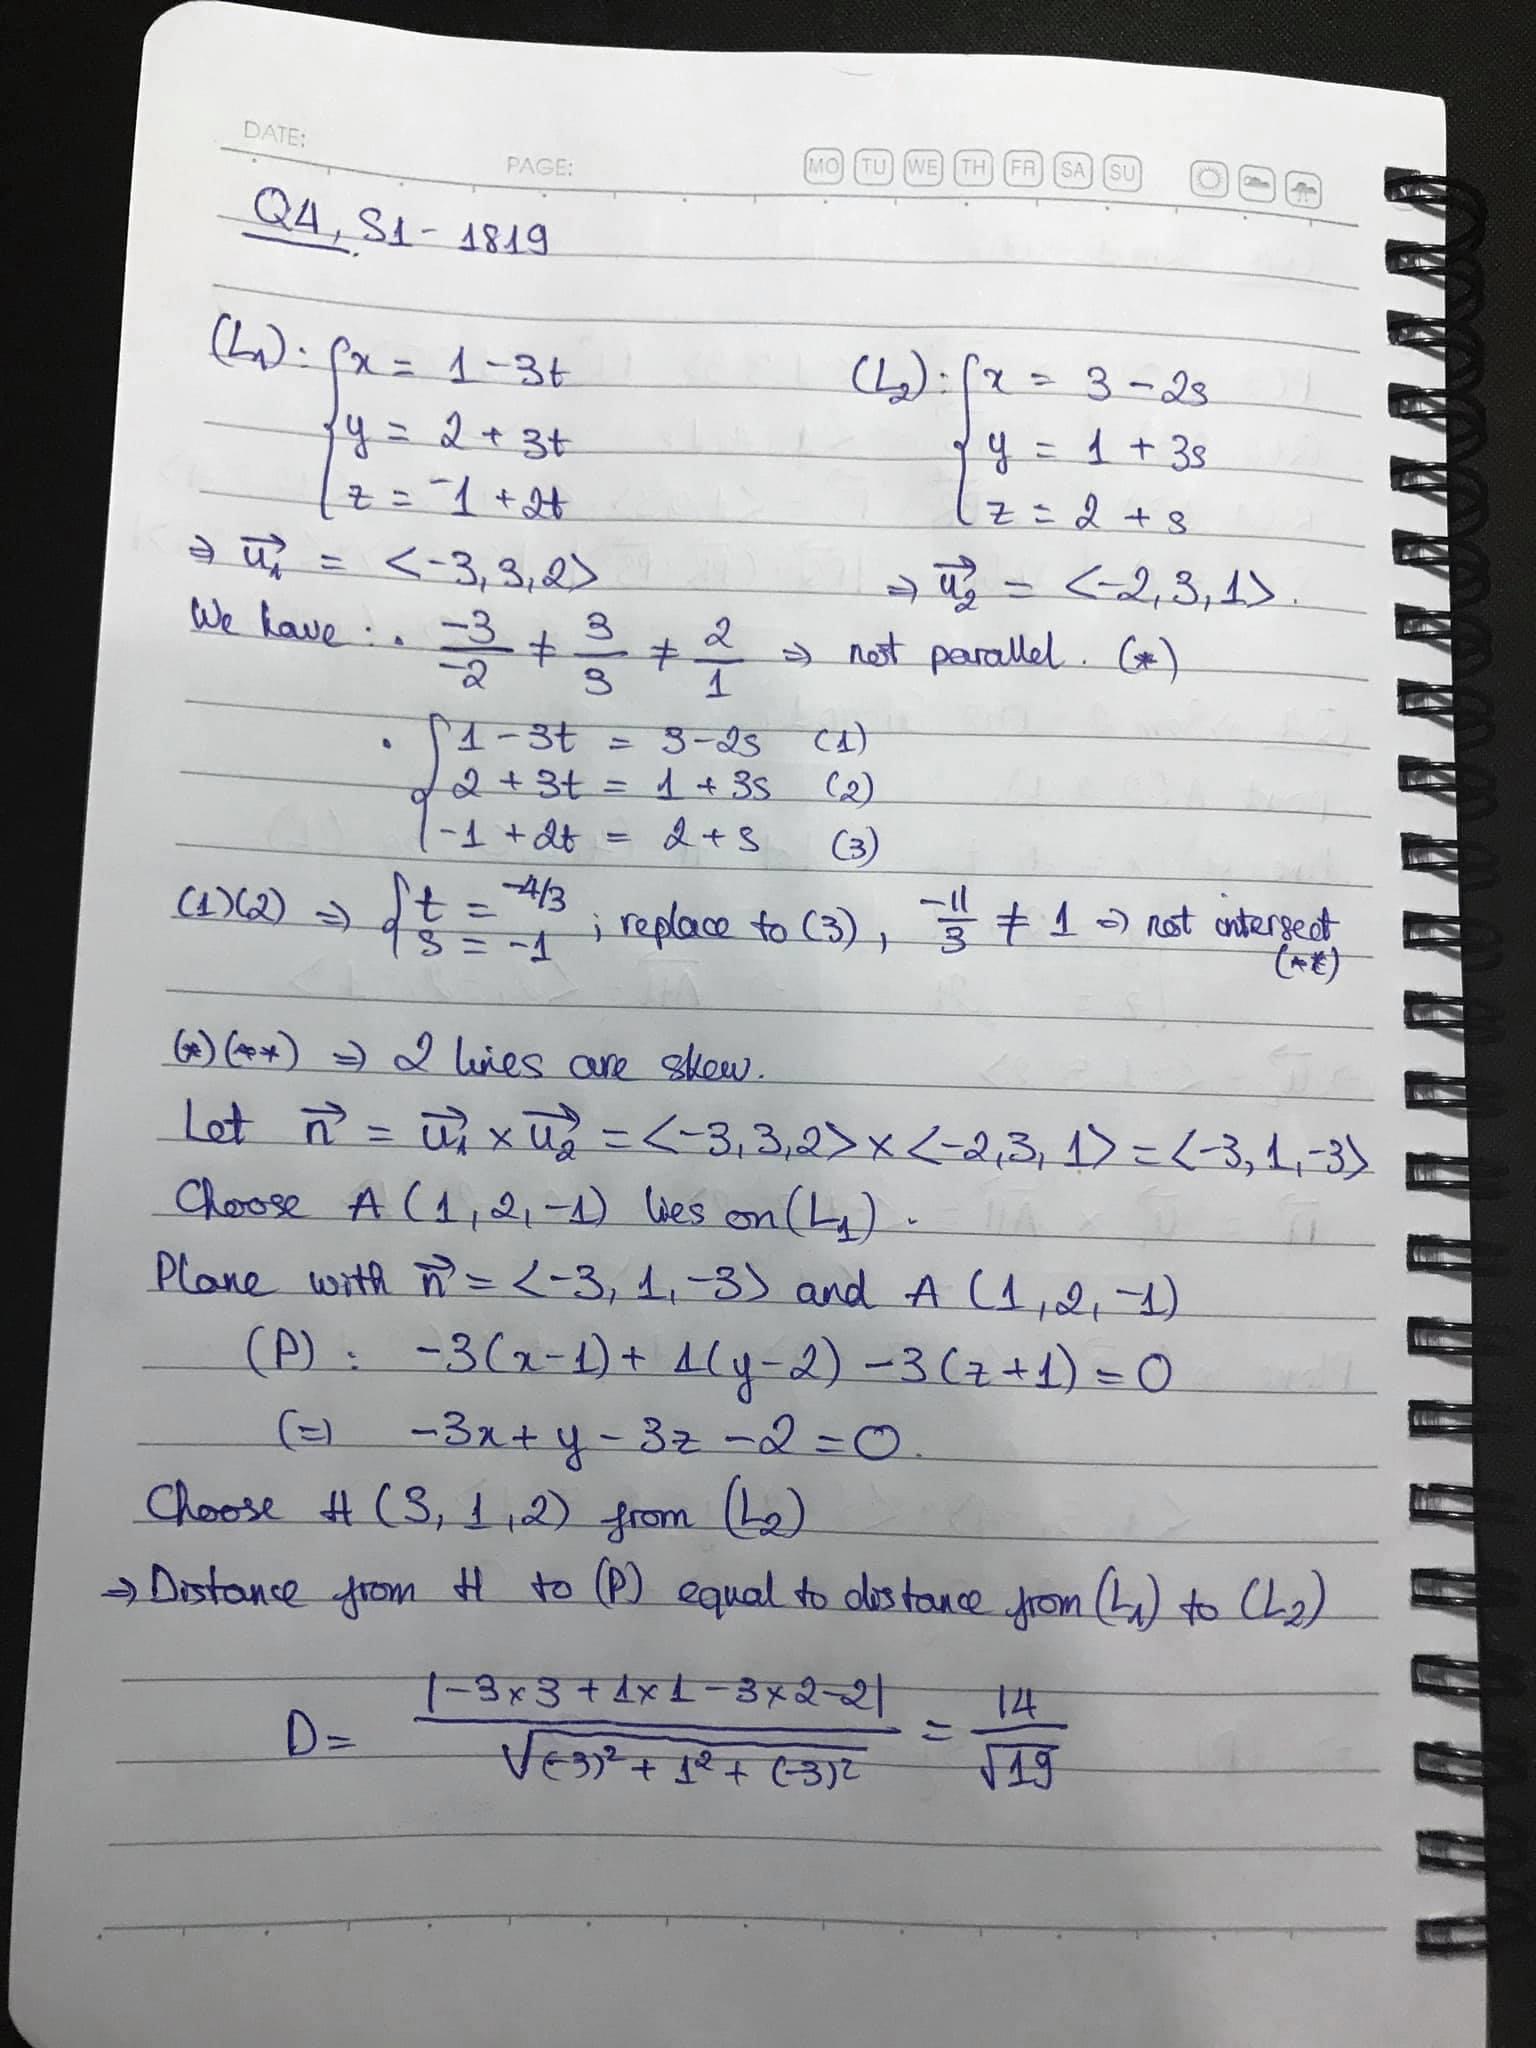 DATE:
PAGE:
MO TU WE TH FR SA SU
Q4, S1 - 1819
(L₁): { x = 1 - 3t
y = 2 + 3t
z = -1 + 2t
(L₂): { x = 3 - 2s
y = 1 + 3s
z = 2 + s
⇒ u₁→ = <-3, 3, 2>
⇒ u₂→ = <-2, 3, 1>.
We have: • -3/-2 ≠ 3/3 ≠ 2/1 ⇒ not parallel. (*)
• { 1 - 3t = 3 - 2s (1)
2 + 3t = 1 + 3s (2)
-1 + 2t = 2 + s (3)
(1)(2) ⇒ { t = -4/3
s = -1 ; replace to (3), -11/3 ≠ 1 ⇒ not intersect
(**)
(*)(**) ⇒ 2 lines are skew.
Let n→ = u₁→ × u₂→ = <-3, 3, 2> × <-2, 3, 1> = <-3, 1, -3>
Choose A (1, 2, -1) lies on (L₁).
Plane with n→ = <-3, 1, -3> and A (1, 2, -1)
(P): -3(x-1) + 1(y-2) - 3(z+1) = 0
(=) -3x + y - 3z - 2 = 0.
Choose H (3, 1, 2) from (L₂)
⇒ Distance from H to (P) equal to distance from (L₁) to (L₂)
D = |-3×3 + 1×1 - 3×2 - 2| / √((-3)² + 1² + (-3)²) = 14/√19